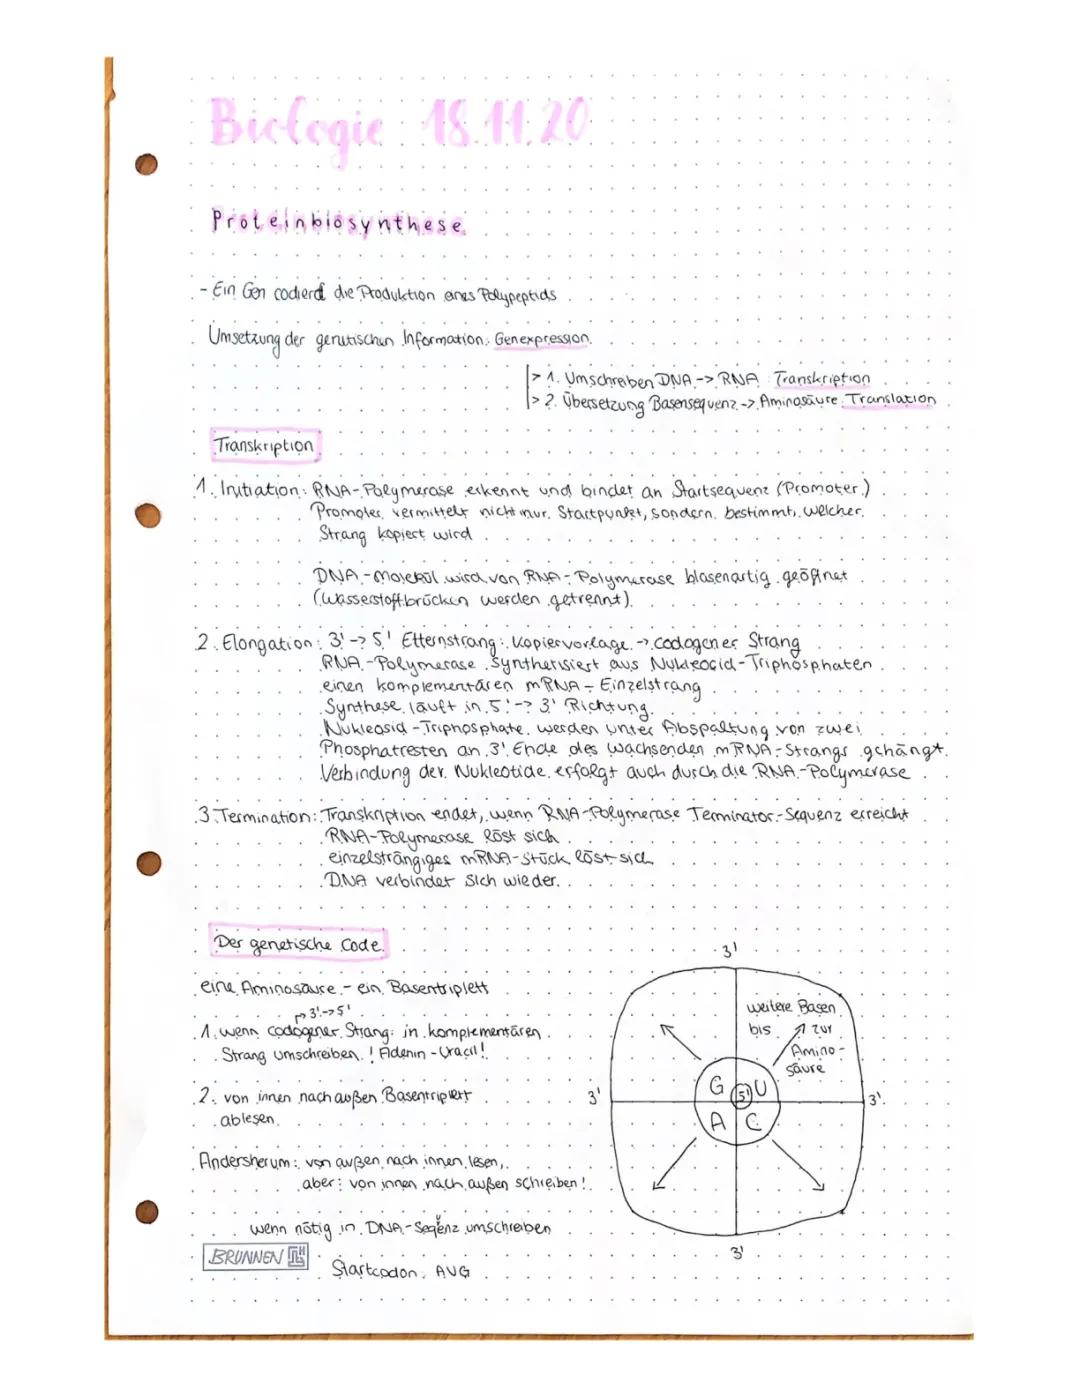 Biologie 18.11.20
Proteinbiosynthese
- Ein Gen codierd die Produktion eines Polypeptids
Umsetzung der genetischen Information: Genexpression
> 1. Umschreiben DNA -> RNA Transkription
> 2. Übersetzung Basensequenz -> Aminosäure Translation
Transkription
1. Initiation: RNA-Polymerase erkennt und bindet an Startsequenz (Promoter)
Promoter vermittelt nicht nur Startpunkt, sondern bestimmt, welcher
Strang kopiert wird
DNA-Molekül wird von RNA-Polymerase blasenartig geöffnet
(Wasserstoffbrücken werden getrennt)
2. Elongation: 3'-> 5' Elternstrang: Kopiervorlage -> codogener Strang
RNA-Polymerase synthetisiert aus Nukleosid-Triphosphaten
einen komplementären mRNA-Einzelstrang
Synthese läuft in 5'-> 3' Richtung
Nukleosid-Triphosphate werden unter Abspaltung von zwei
Phosphatresten an 3' Ende des wachsenden mRNA-Strangs gehängt.
Verbindung der Nukleotide erfolgt auch durch die RNA-Polymerase
3. Termination: Transkription endet, wenn RNA-Polymerase Terminator-Sequenz erreicht
RNA-Polymerase löst sich
einzelsträngiges mRNA-Stück löst sich
DNA verbindet sich wieder.
Der genetische Code
eine Aminosäure - ein Basentriplett
3'->5'
1. wenn codogener Strang: in komplementären
Strang umschreiben ! Adenin - Uracil!
2. von innen nach außen Basentriplett
ablesen
Andersherum: von außen nach innen lesen,
aber: von innen nach außen schreiben!
wenn nötig in DNA-Seqenz umschreiben
u
Startcodon: AUG
BRUNNEN
3'
weitere Basen
bis zur
Amino-
säure
G U
5'
A C
3'
3'
3'